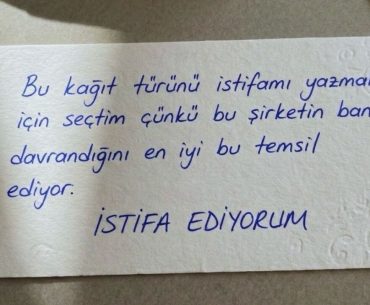 Bu kağıt türünü istifamı yazma
için seçtim çünkü bu şirketin ban
davrandığını en iyi bu temsil
ediyor.
İSTİFA EDİYORUM